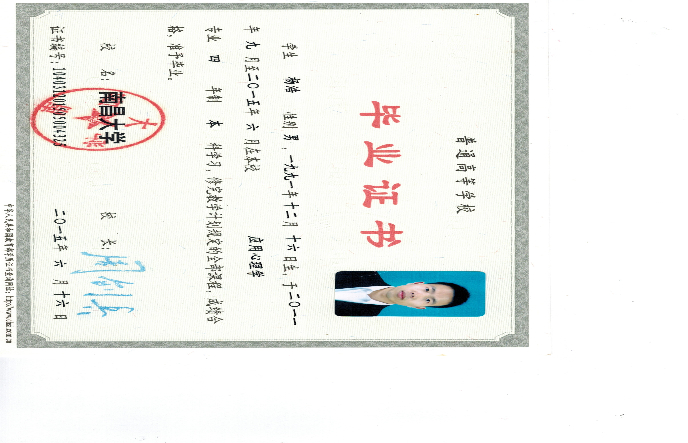 普通高等学校
毕业证书
学生 杨浩 性别 男，一九九一年十二月十六日生，于二〇一一
年 九 月至二〇一五年 六 月在本校 应用心理学
专业 四 年制 本 科学习，修完教学计划规定的全部课程，成绩合
格，准予毕业。
校 名： 南昌大学 校 长：
证书编号： 二〇一五年 六 月十六 日